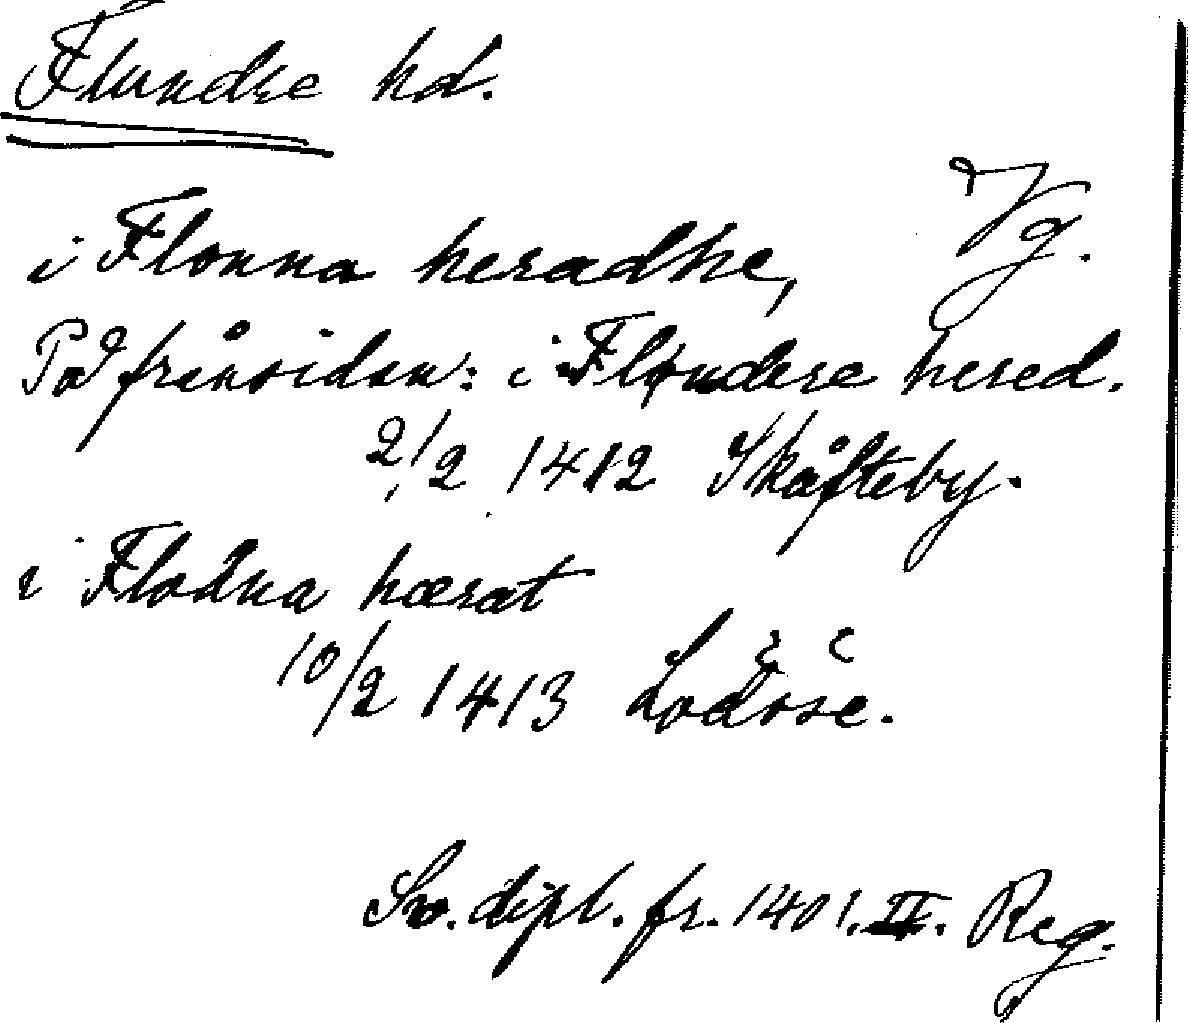 Flundre hd.
Vg.
i Flonna heradhe,
På frånsidan: i Flondere hered.
2/2 1412 Skåfteby.
i Flodna hærat
10/2 1413 Lodose.
Sv. dipl. fr. 1401. II. Reg.